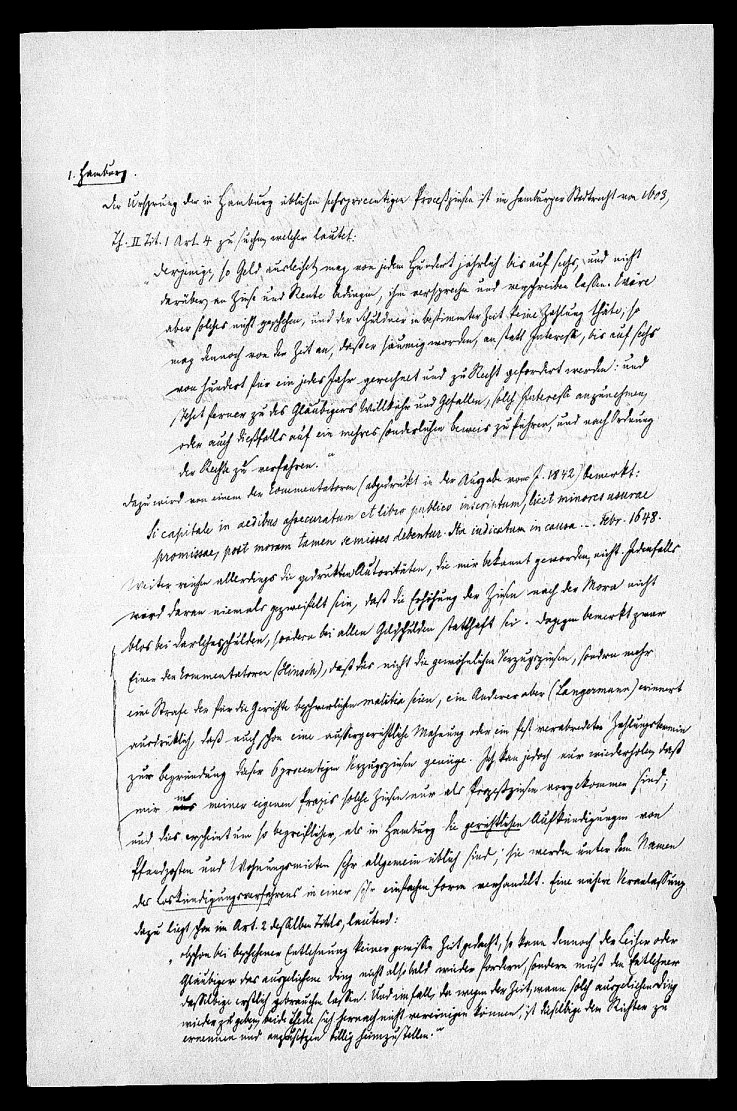 1. Hamburg.
Der Ursprung der in Hamburg üblichen sechsprocentigen Proceßzinsen ist im Hamburger Stadtrecht von 1603,
Th. II Tit. 1 Art. 4 zu suchen, welcher lautet:
"Derjenige, so Geld ausleihet, mag von jedem Hundert jährlich bis auf sechs, und nicht
darüber, an Zinse und Rente bedingen, ihm versprechen und verschreiben lassen. Wäre
aber solches nicht geschehen, und der Schuldner in bestimmter Zeit keine Zahlung thäte; so
mag dennoch von der Zeit an, daß er säumig worden, anstatt Interesse, bis auf sechs
von Hundert für ein jedes Jahr gerechnet und zu Recht gefordert werden: und
stehet ferner zu des Gläubigers Willkühr und Gefallen, solch Interesse anzunehmen,
oder auch dießfalls auf ein mehres sonderlichen beweis zu führen, und nach Ordnung
der Rechte zu verfahren."
Dazu wird von einem der Commentatoren (abgedruckt in der Ausgabe vom J. 1842) bemerkt:
Si capitale in aedibus assecuratum et libro publico inscriptum, licet minores usurae
promissae, post moram tamen semisses debentur. Ita iudicatum in causa ... Febr. 1648.
Weiter reichen allerdings die gedruckten Autoritäten, die mir bekannt geworden, nicht. Jedenfalls
ward daran niemals gezweifelt sein, daß die Erhöhung der Zinsen nach der Mora nicht
blos bei Darlehnsschulden, sondern bei allen Geldschulden statthaft sei. Dagegen bemerkt zwar
Einer der Commentatoren (Hinsch), daß das nicht die gewöhnlichen Verzugszinsen, sondern mehr
eine Strafe der für die Gerichte beschwerlichen malitia seien, ein Anderer aber (Langermann) erinnert
ausdrücklich, daß auch schon eine außergerichtliche Mahnung oder ein fest verabredeter Zahlungstermin
zur begründung dieser 6procentigen Verzugszinsen genüge. Ich kan jedoch nur wiederholen, daß
mir aus meiner eigenen Praxis solche Zinsen nur als Proceßzinsen vorgekommen sind;
und dies erscheint um so begreiflicher, als in Hamburg die gerichtlichen Aufkündigungen von
Pfandposten und Wohnungsmieten sehr allgemein üblich sind; sie werden unter dem Namen
des Loskündigungsverfahrens in einer sehr einfachen Form verhandelt. Eine nähere Veranlassung
dazu liegt schon im Art. 2 desselben Titels, lautend:
"obschon bei beschehener Entlehnung keiner gewissen Zeit gedacht, so kann dennoch der Leiher oder
Gläubiger das ausgeliehene Ding nicht alsobald wieder fordern, sondern muß den Entlehner
dasselbige erstlich gebrauchen lassen. Und im fall, da wegen der Zeit, wann solch ausgeliehen Ding
wieder zu geben, beide Theile sich hernach nicht vereinigen können, ist dieselbige dem Richter zu
ernennen und anzusetzen billig heimzustellen."